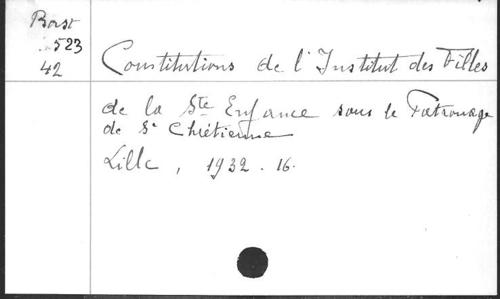 Borst
523
42
Constitutions de l'Institut des Filles
de la Ste Enfance sous le Patronage
de Se Chrétienne
Lille, 1932. 16.